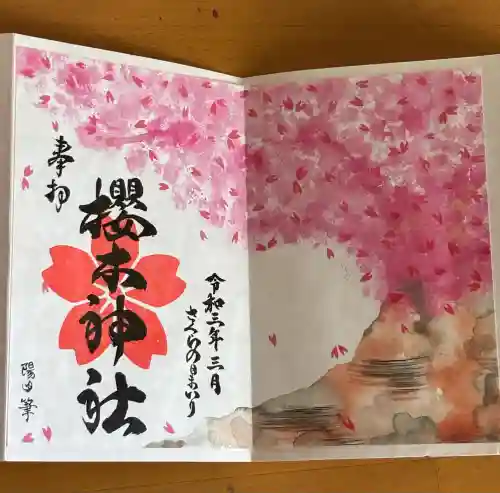 令和三年三月
さくらの日まいり
櫻木神社
奉拝
陽由筆